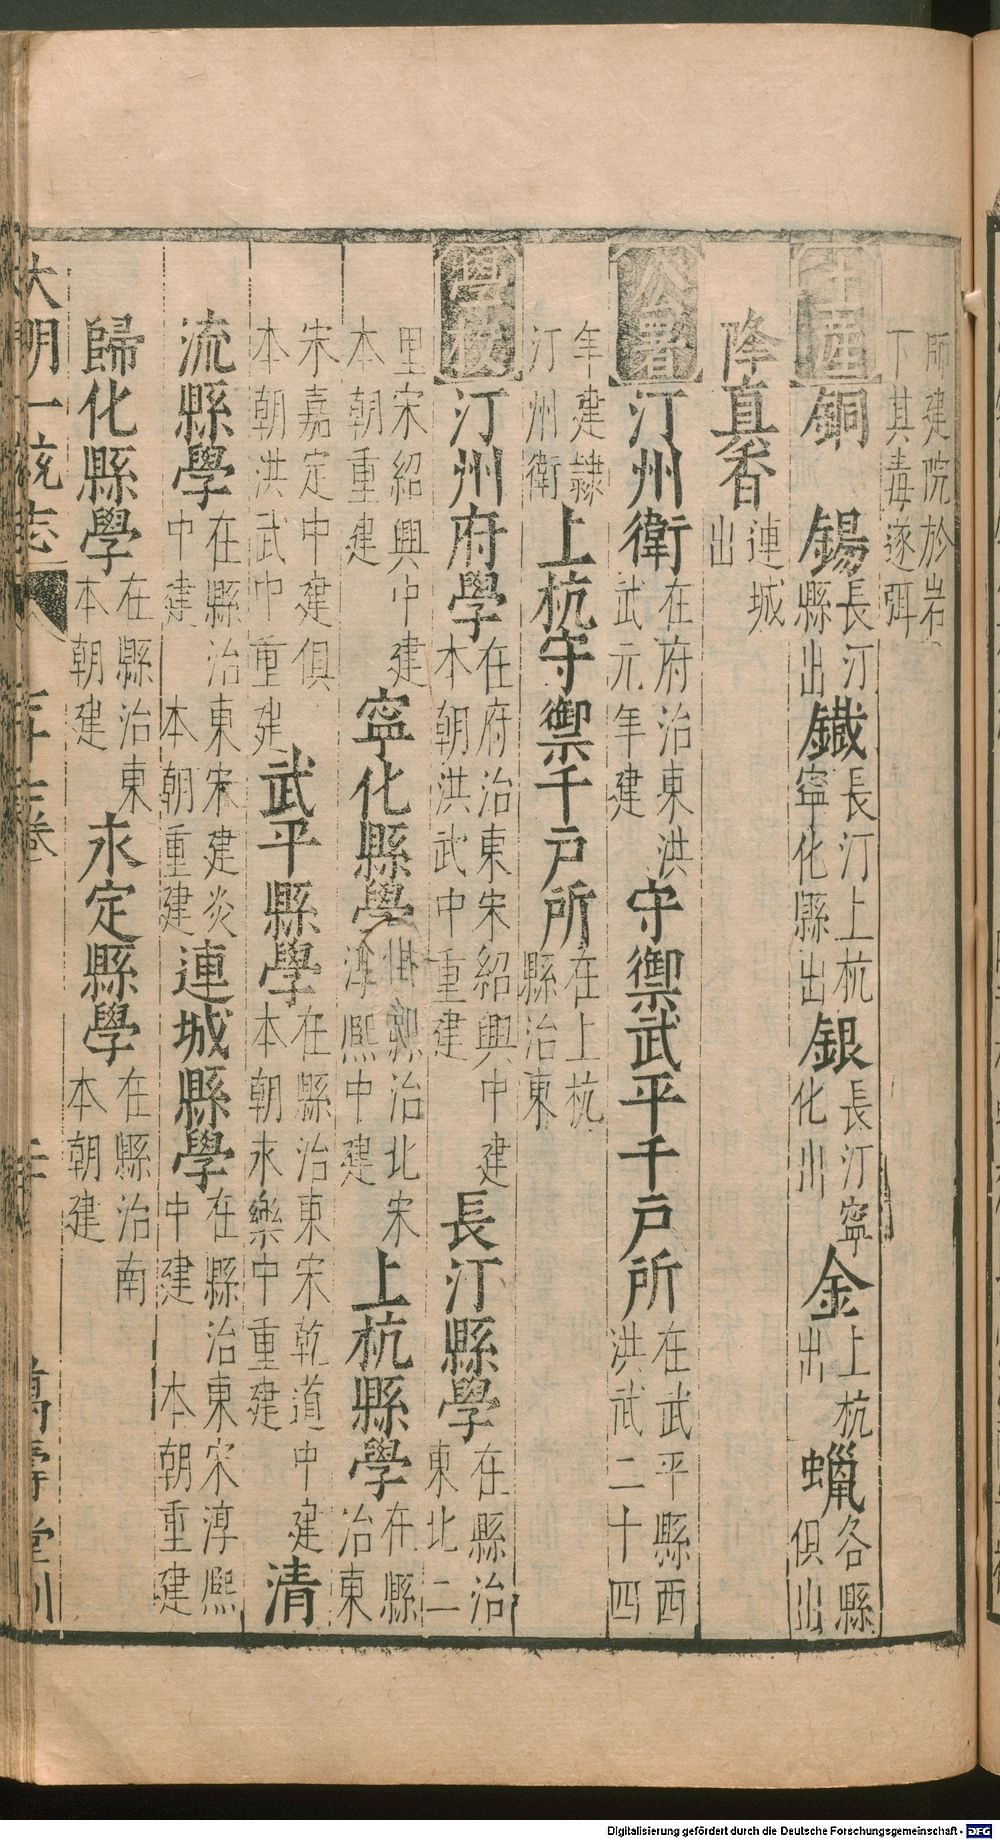 師建院於岩
丁其毒遂弭
土産銅 錫長汀縣出鐵長汀上杭寧化縣出銀長汀寧化出金上杭出蠟各縣俱出
降真香連城出
公署汀州衛在府治東洪武元年建守禦武平千戶所在武平縣西洪武二十四
年建隸汀州衛上杭守禦千戶所在上杭縣治東
學校汀州府學在府治東宋紹興中建本朝洪武中重建長汀縣學在縣治東北二
里宋紹興中建本朝重建寧化縣學在縣治北宋淳熙中建上杭縣學在縣治東
宋嘉定中建俱本朝洪武中重建武平縣學在縣治東宋乾道中建本朝永樂中重建清
流縣學在縣治東宋建炎中建本朝重建連城縣學在縣治東宋淳熙中建本朝重建
歸化縣學在縣治東本朝建永定縣學在縣治南本朝建
大明一統志
卷
萬壽堂刊
Digitalisierung gefördert durch die Deutsche Forschungsgemeinschaft - DFG